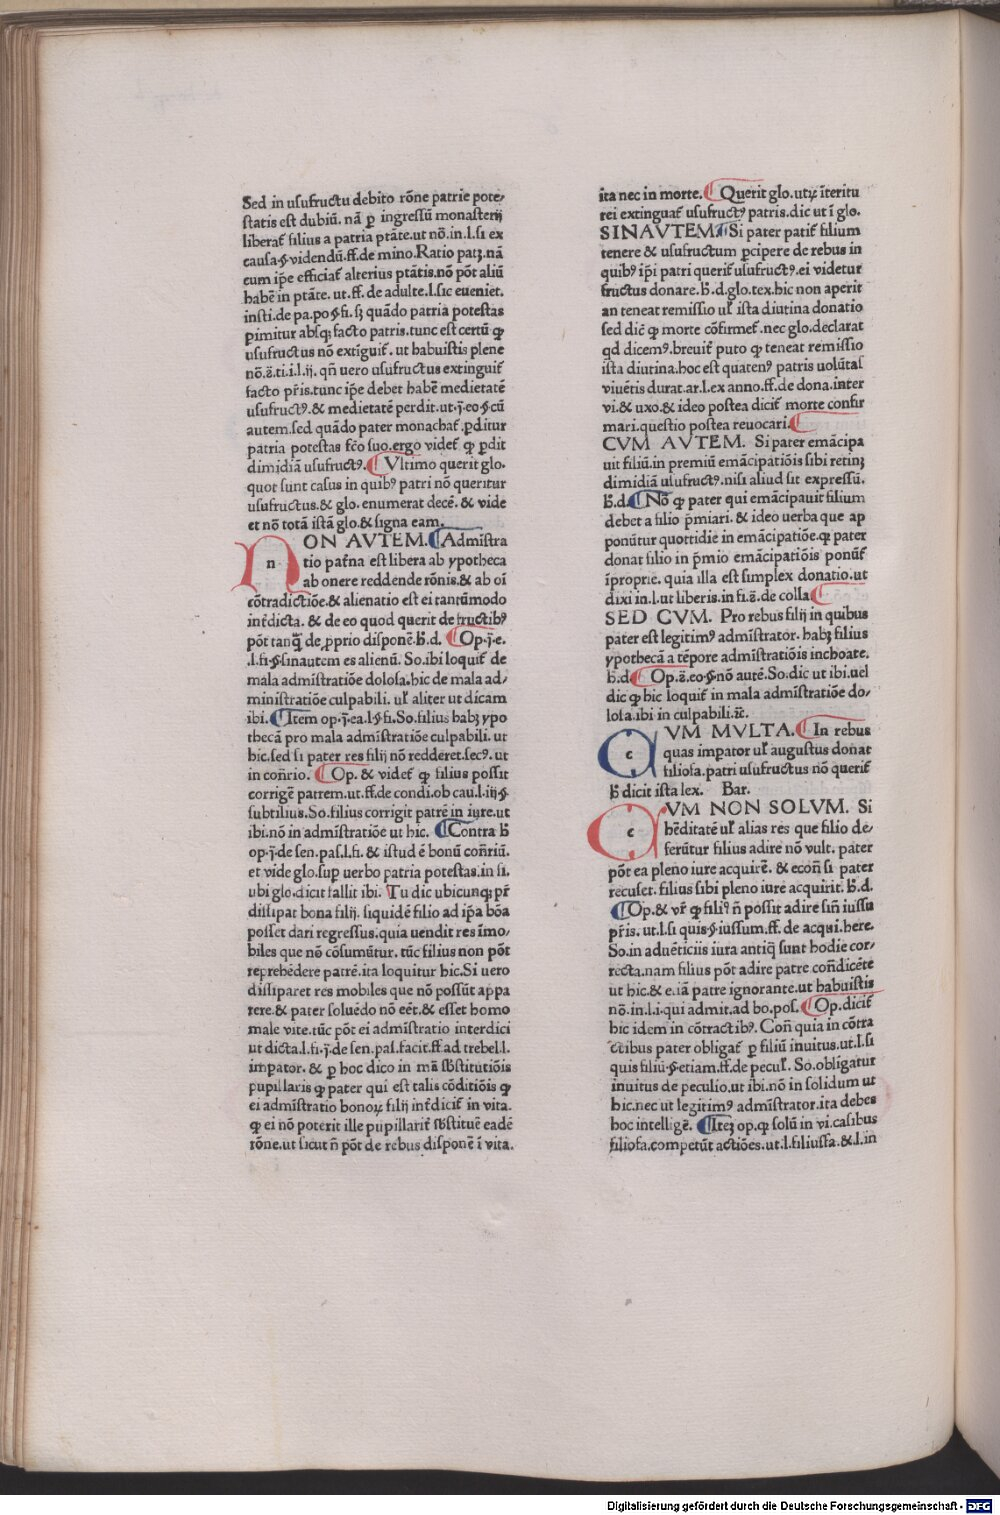 Sed in usufructu debito rōne patrie pote⸗
statis est dubiū. nā ꝑ ingressū monasterij
liberat᷑ filius a patria ptāte.ut nō.in.l.si ex
causa.§.videndū.ff.de mino.Ratio patꝫ.nā
cum ip̄e efficiat᷑ alterius ptātis.nō pōt aliū
habē in ptāte. ut.ff.de adulte.l.sic eueniet.
insti.de pa.po.§.fi.sꝫ quādo patria potestas
pimitur absqꝫ facto patris.tunc est certū ꝙ
usufructus nō extiguit᷑. ut habuistis plene
nō.s̄.ti.i.l.ij. qn̄ uero usufructus extinguit᷑
facto pr̄is.tunc ip̄e debet habē medietatē
usufructꝰ.& medietatē perdit.ut.j̄.eo.§.cū
autem.sed quādo pater monachat᷑.ꝑditur
patria potestas fc̄o suo.ergo videt᷑ ꝙ ꝑdit
dimidiā usufructꝰ. Vltimo querit glo.
quot sunt casus in quibꝰ patri nō queritur
usufructus.& glo. enumerat decē. & vide
et nō totā istā glo.& signa eam.
NON AVTEM. Admistra
n tio pat᷑na est libera ab ypotheca
ab onere reddende rōnis.& ab oi
cōtradictiōe.& alienatio est ei tantūmodo
int᷑dicta. & de eo quod querit de fructibꝰ
pōt tanq̄ de ꝓprio disponē.h̄.d. Op.j̄.e.
.l.fi.§.sinautem es alienū. So.ibi loquit᷑ de
mala admistratiōe dolosa.hic de mala ad⸗
ministratiōe culpabili. ul᷑ aliter ut dicam
ibi. Item op.j̄.ea.l.§.fi.So.filius habꝫ ypo
thecā pro mala admistratiōe culpabili. ut
hic.sed si pater res filij nō redderet.secꝰ. ut
in con̄rio. Op. & videt᷑ ꝙ filius possit
corrigē patrem.ut.ff.de condi.ob cau.l.iij.§
subtilius.So.filius corrigit patrē in iure.ut
ibi.nō in admistratiōe ut hic. Contra h̄
op.j̄.de sen.pas.l.fi. & istud ē bonū con̄riū.
et vide glo.suꝑ uerbo patria potestas.in si.
ubi glo.dicit fallit ibi. Tu dic ubicunqꝫ pr̄
dissipat bona filij. siquidē filio ad ip̄a bōa
posset dari regressus.quia uendit res imo⸗
biles que nō cōsumūtur. tūc filius non pōt
reprehēdere patrē.ita loquitur hic.Si uero
dissiparet res mobiles que nō possūt appa
rere.& pater soluēdo nō eēt.& esset homo
male vite.tūc pōt ei admistratio interdici
ut dicta.l.fi.j̄.de sen.pas.facit.ff.ad trebel.l.
impator. & ꝑ hoc dico in mā sb̄stitutiōis
pupillaris ꝙ pater qui est talis cōditiōis ꝙ
ei admistratio bonoꝝ filij int᷑dicit᷑ in vita.
ꝙ ei nō poterit ille pupillarit᷑ sb̄stituē eadē
rōne.ut sicut n̄ pōt de rebus disponē ī vita.
ita nec in morte. Querit glo.utꝝ īteritu
rei extinguat᷑ usufructꝰ patris.dic ut ī glo.
SINAVTEM. Si pater patit᷑ filium
tenere & usufructum pcipere de rebus in
quibꝰ ip̄i patri querit᷑ usufructꝰ.ei videtur
fructus donare.h̄.d.glo.tex.hic non aperit
an teneat remissio ul᷑ ista diutina donatio
sed dic̄ ꝙ morte cōfirmet᷑.nec glo.declarat
qd dicemꝰ.breuit᷑ puto ꝙ teneat remissio
ista diutina.hoc est quatenꝰ patris volūtas
viuētis durat.ar.l.ex anno.ff.de dona.inter
vi.& uxo.& ideo postea dicit᷑ morte confir
mari.questio postea reuocari.
CVM AVTEM. Si pater emācipa
uit filiū.in premiū emācipatiōis sibi retinꝫ
dimidiā usufructꝰ.nisi aliud sit expressū.
h̄.d. Nō ꝙ pater qui emācipauit filium
debet a filio p̄miari. & ideo uerba que ap
ponūtur quottidie in emācipatiōe.ꝙ pater
donat filio in p̄mio emācipatiōis ponūt᷑
īproprie. quia illa est simplex donatio.ut
dixi in.l.ut liberis.in fi.s̄.de colla
SED CVM. Pro rebus filij in quibus
pater est legitimꝰ admistrator. habꝫ filius
ypothecā a tēpore admistratiōis inchoate.
h̄.d. Op.s̄.eo.§.nō autē.So.dic ut ibi.uel
dic ꝙ hic loquit᷑ in mala admistratiōe do⸗
losa.ibi in culpabili.⁊c̄.
CVM MVLTA. In rebus
c quas impator ul᷑ augustus donat
filiosa.patri usufructus nō querit᷑
h̄ dicit ista lex. Bar.
CVM NON SOLVM. Si
c hēditatē ul᷑ alias res que filio de⸗
ferūtur filius adire nō vult. pater
pōt ea pleno iure acquirē. & econ̄ si pater
recuset. filius sibi pleno iure acquirit. h̄.d.
Op.& vr̄ ꝙ filiꝰ n̄ possit adire sin̄ iussu
pr̄is. ut.l.si quis.§.iussum.ff. de acqui.here.
So.in aduēticiis iura antiq̄ sunt hodie cor⸗
recta.nam filius pōt adire patre con̄dicēte
ut hic.& e.iā patre ignorante.ut habuistis
nō.in.l.i.qui admit.ad bo.pos. Op.dicit᷑
hic idem in cōtractibꝰ. Con̄ quia in cōtra
ctibus pater obligat᷑ ꝑ filiū inuitus.ut.l.si
quis filiū.§.etiam.ff.de pecul᷑. So.obligatur
inuitus de peculio.ut ibi.nō in solidum ut
hic.nec ut legitimꝰ admistrator.ita debes
hoc intelligē. Iteꝫ op.ꝙ solū in vi.casibus
filiofa.competūt actiōes.ut.l.filiusfa.&.l.in
Digitalisierung gefördert durch die Deutsche Forschungsgemeinschaft - DFG